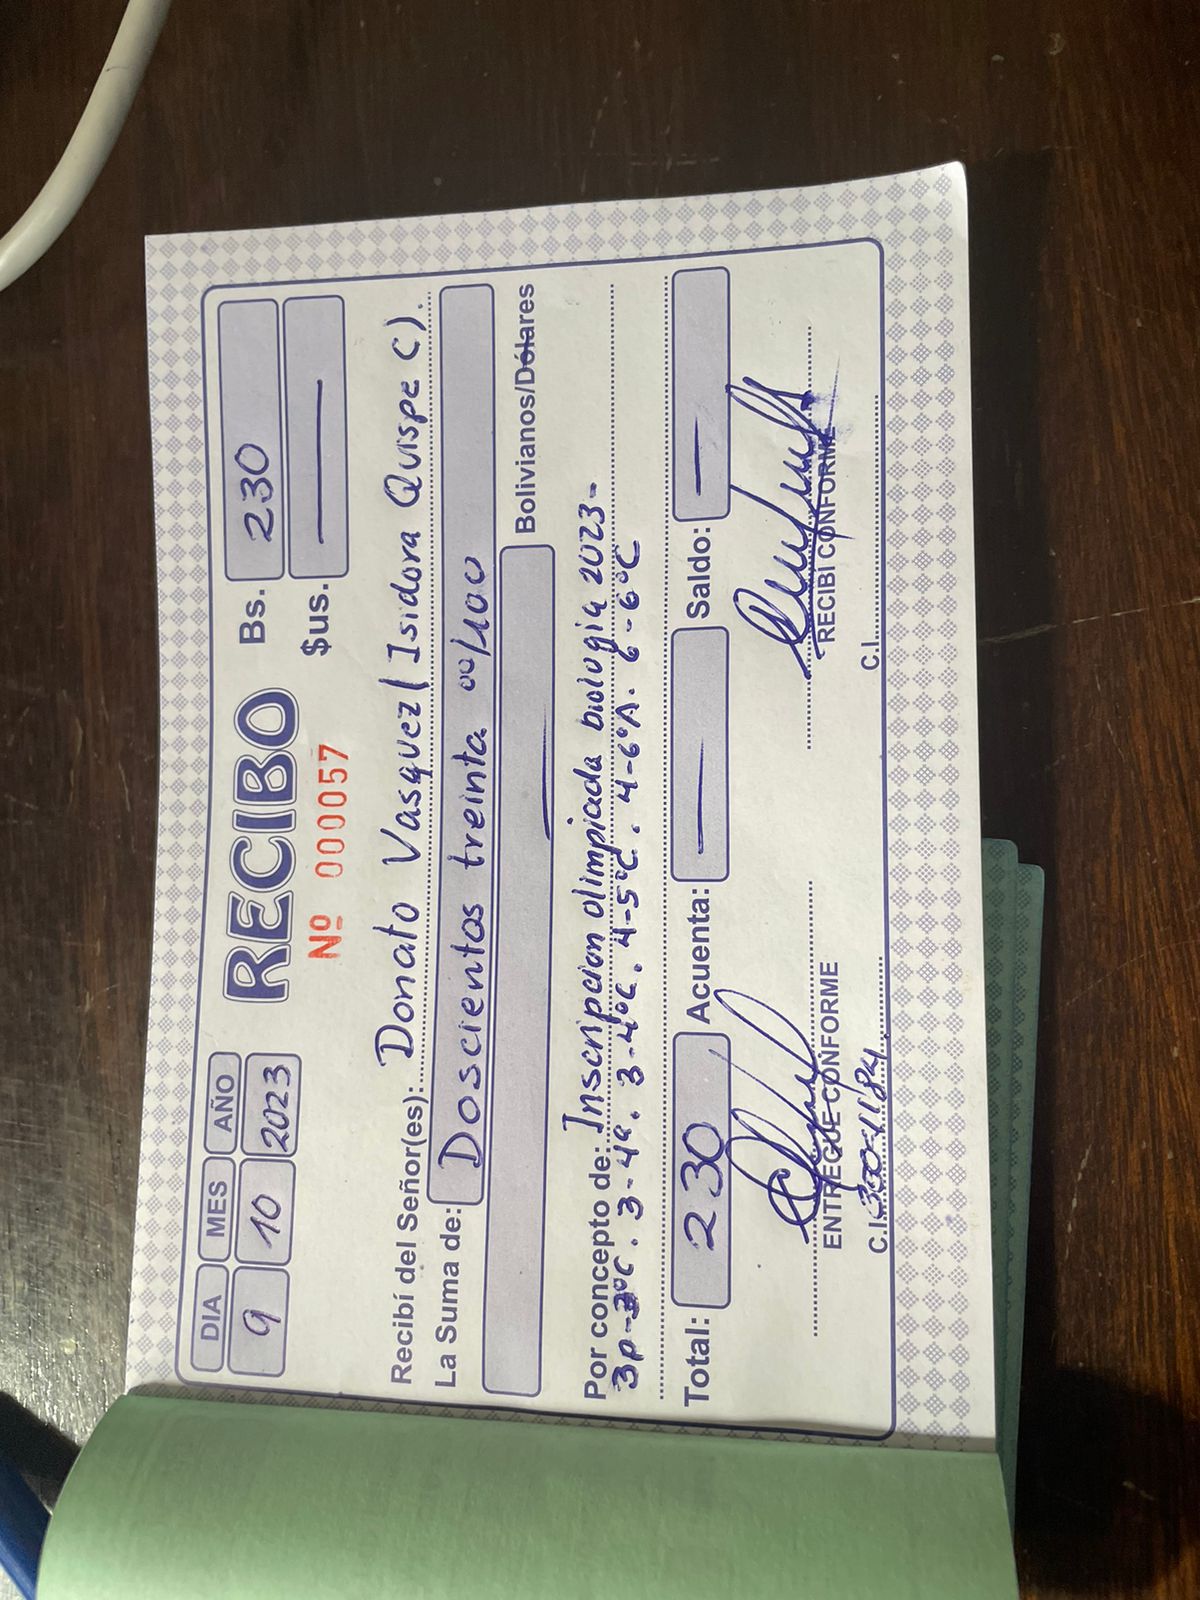 DIA MES AÑO
9 10 2023
RECIBO
Nº 000057
Bs. 230
$us. —
Recibí del Señor(es): Donato Vasquez (Isidora Quispe C).
La Suma de: Doscientos treinta 00/100
— Bolivianos/Dólares
Por concepto de: Inscripcion olimpiada biologia 2023-
3-4ª. 3-4ºC. 4-5ºC. 4-6ºA. 6-6ºC
Total: 230 Acuenta: — Saldo: —
ENTREGUE CONFORME RECIBI CONFORME
C.I. C.I.